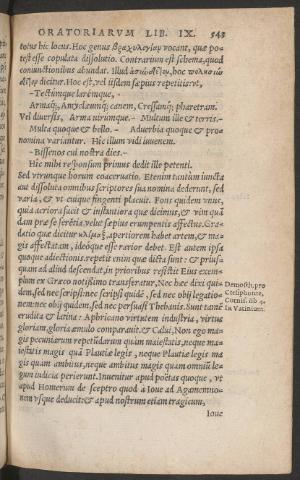 ORATORIARVM LIB. IX. 543
totus hic locus. Hoc genus βραχυλογίαν vocant, quæ po-
test esse copulata dissolutio. Contrarium est schema, quod
coniunctionibus abundat. Illud ἀσύνδετον, hoc πολυσύν
δετον dicitur. Hoc est, vel iisdem sæpius repetitis: vt,
-Tectúmque larémque,-
Armáq;, Amyclæumq; canem, Cressámq; pharetram.
Vel diuersis, Arma virúmque.- Multum ille & terris.-
Multa quoque & bello. - Aduerbia quoque & pro-
nomina variantur. Hic illum vidi iuuenem.
-Bissenos cui nostra dies.-
Hic mihi responsum primus dedit ille petenti.
Sed vtrunque horum coaceruatio. Etenim tantùm iuncta
aut dissoluta omnibus scriptores sua nomina dederunt, sed
varia, & vt cuique fingenti placuit. Fons quidem vnus,
quia acriora facit & instantiora quæ dicimus, & vim quã
dam præ se ferētia, velut sæpius erumpentis affectus. Gra-
datio quæ dicitur κλίμαξ, apertiorem habet artem, & ma-
gis affectatam, ideóque esse rarior debet. Est autem ipsa
quoque adiectionis. repetit enim quæ dicta sunt: & priùs
quam ad aliud descendat, in prioribus resistit. Eius exem-
plum ex Græco notißimo transferatur, Nec hæc dixi qui-
dem, sed nec scripsi: nec scripsi quidē, sed nec obij legatio-
nem: nec obij quidem, sed nec persuasi Thebanis. Sunt tamē
erudita & latina: Aphricano virtutem industria, virtus
gloriam, gloria æmulos comparauit. & Calui, Non ergo ma-
gis pecuniarum repetūdarum quàm maiestatis, neque ma-
iestatis magis quà Plautiæ legis, neque Plautiæ legis ma
gis quàm ambitus, neque ambitus magis quàm omniū le-
gum iudicia perierunt. Inuenitur apud poëtas quoque, vt
apud Homerum de sceptro quod à Ioue ad Agamemno-
nem vsque deducit: & apud nostrum etiam tragicum,
Ioue
Demosth. pro
Ctesiphonte,
Cornif. lib. 4.
In Vatinium.